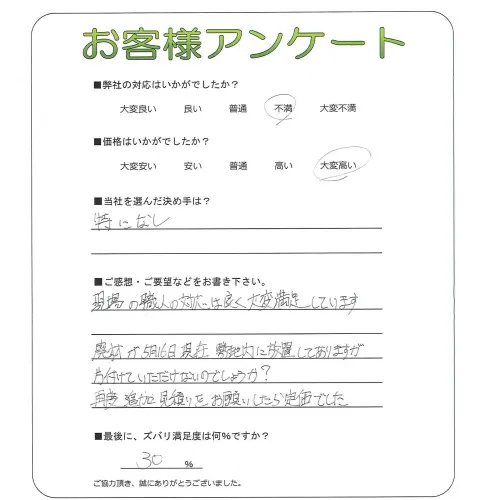 お客様アンケート
■弊社の対応はいかがでしたか？
大変良い 良い 普通 不満 大変不満
■価格はいかがでしたか？
大変安い 安い 普通 高い 大変高い
■当社を選んだ決め手は？
特になし
■ご感想・ご要望などをお書き下さい。
現場の職人の対応は良く大変満足しています
廃材が5月16日現在 敷地内に放置してありますが
片付けていただけないのでしょうか？
再度追加見積りをお願いしたら定価でした
■最後に、ズバリ満足度は何%ですか？
30 %
ご協力頂き、誠にありがとうございました。